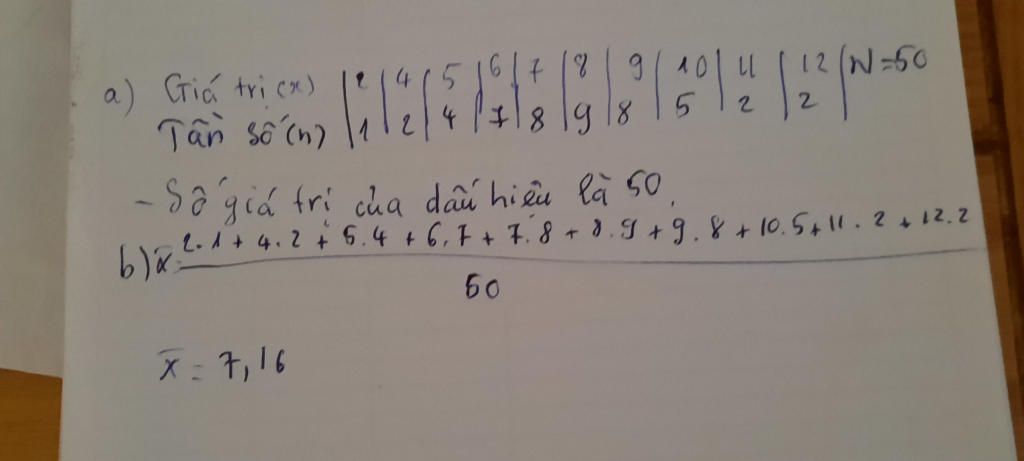 a) Giá trị (x) | 2 | 4 | 5 | 6 | 7 | 8 | 9 | 10 | 11 | 12 | N=50
Tần số (n) | 1 | 2 | 4 | 7 | 8 | 9 | 8 | 5 | 2 | 2 |
- Số giá trị của dấu hiệu là 50.
b) x̄ = 2.1 + 4.2 + 5.4 + 6.7 + 7.8 + 8.9 + 9.8 + 10.5 + 11.2 + 12.2
50
x̄ = 7,16